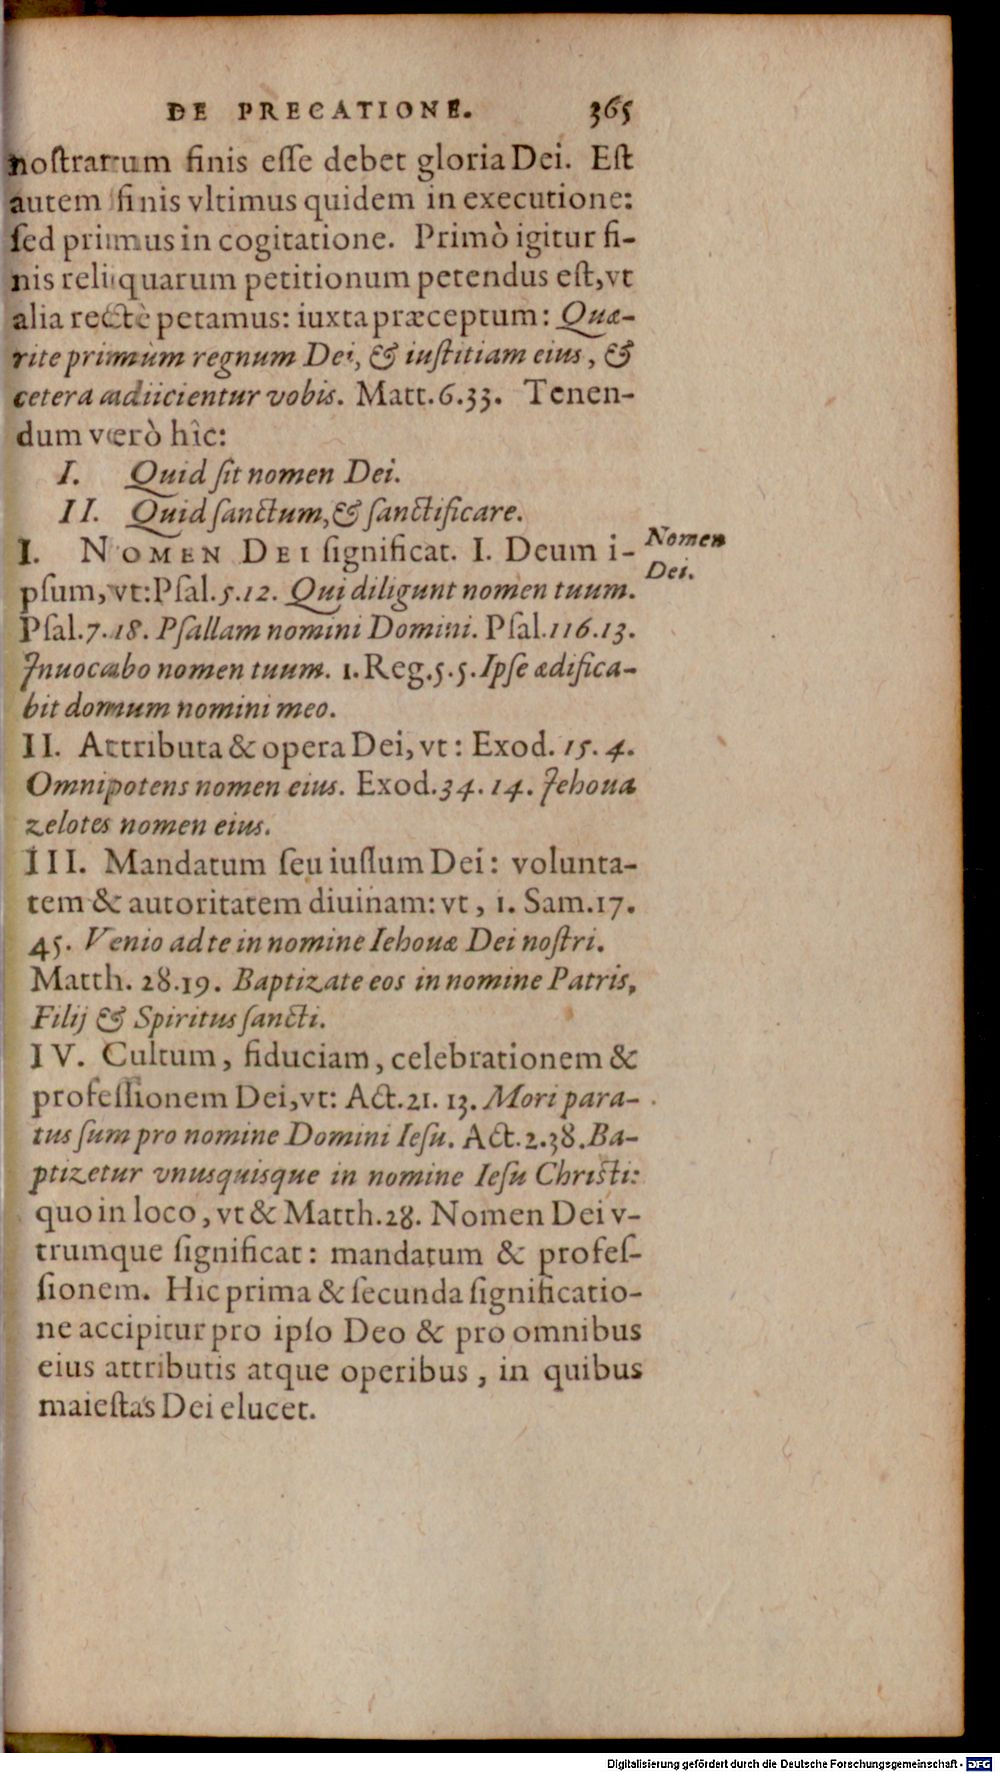 DE PRECATIONE. 365
nostrarum finis esse debet gloria Dei. Est
autem finis vltimus quidem in executione:
sed primus in cogitatione. Primò igitur fi-
nis reliquarum petitionum petendus est, vt
alia rectè petamus: iuxta præceptum: Quæ-
rite primùm regnum Dei, & iustitiam eius, &
cetera adiicientur vobis. Matt. 6. 33. Tenen-
dum verò hîc:
I. Quid sit nomen Dei.
II. Quid sanctum, & sanctificare.
I. NOMEN DEI significat. I. Deum i-
Nomen
Dei.
psum, vt: Psal. 5. 12. Qui diligunt nomen tuum.
Psal. 7. 18. Psallam nomini Domini. Psal. 116. 13.
Inuocabo nomen tuum. 1. Reg. 5. 5. Ipse ædifica-
bit domum nomini meo.
II. Attributa & opera Dei, vt: Exod. 15. 4.
Omnipotens nomen eius. Exod. 34. 14. Jehoua
zelotes nomen eius.
III. Mandatum seu iussum Dei: volunta-
tem & autoritatem diuinam: vt, 1. Sam. 17.
45. Venio ad te in nomine Iehouæ Dei nostri.
Matth. 28. 19. Baptizate eos in nomine Patris,
Filij & Spiritus sancti.
IV. Cultum, fiduciam, celebrationem &
professionem Dei, vt: Act. 21. 13. Mori para-
tus sum pro nomine Domini Iesu. Act. 2. 38. Ba-
ptizetur vnusquisque in nomine Iesu Christi:
quo in loco, vt & Matth. 28. Nomen Dei v-
trumque significat: mandatum & profes-
sionem. Hic prima & secunda significatio-
ne accipitur pro ipso Deo & pro omnibus
eius attributis atque operibus, in quibus
maiestas Dei elucet.
Digitalisierung gefördert durch die Deutsche Forschungsgemeinschaft - DFG